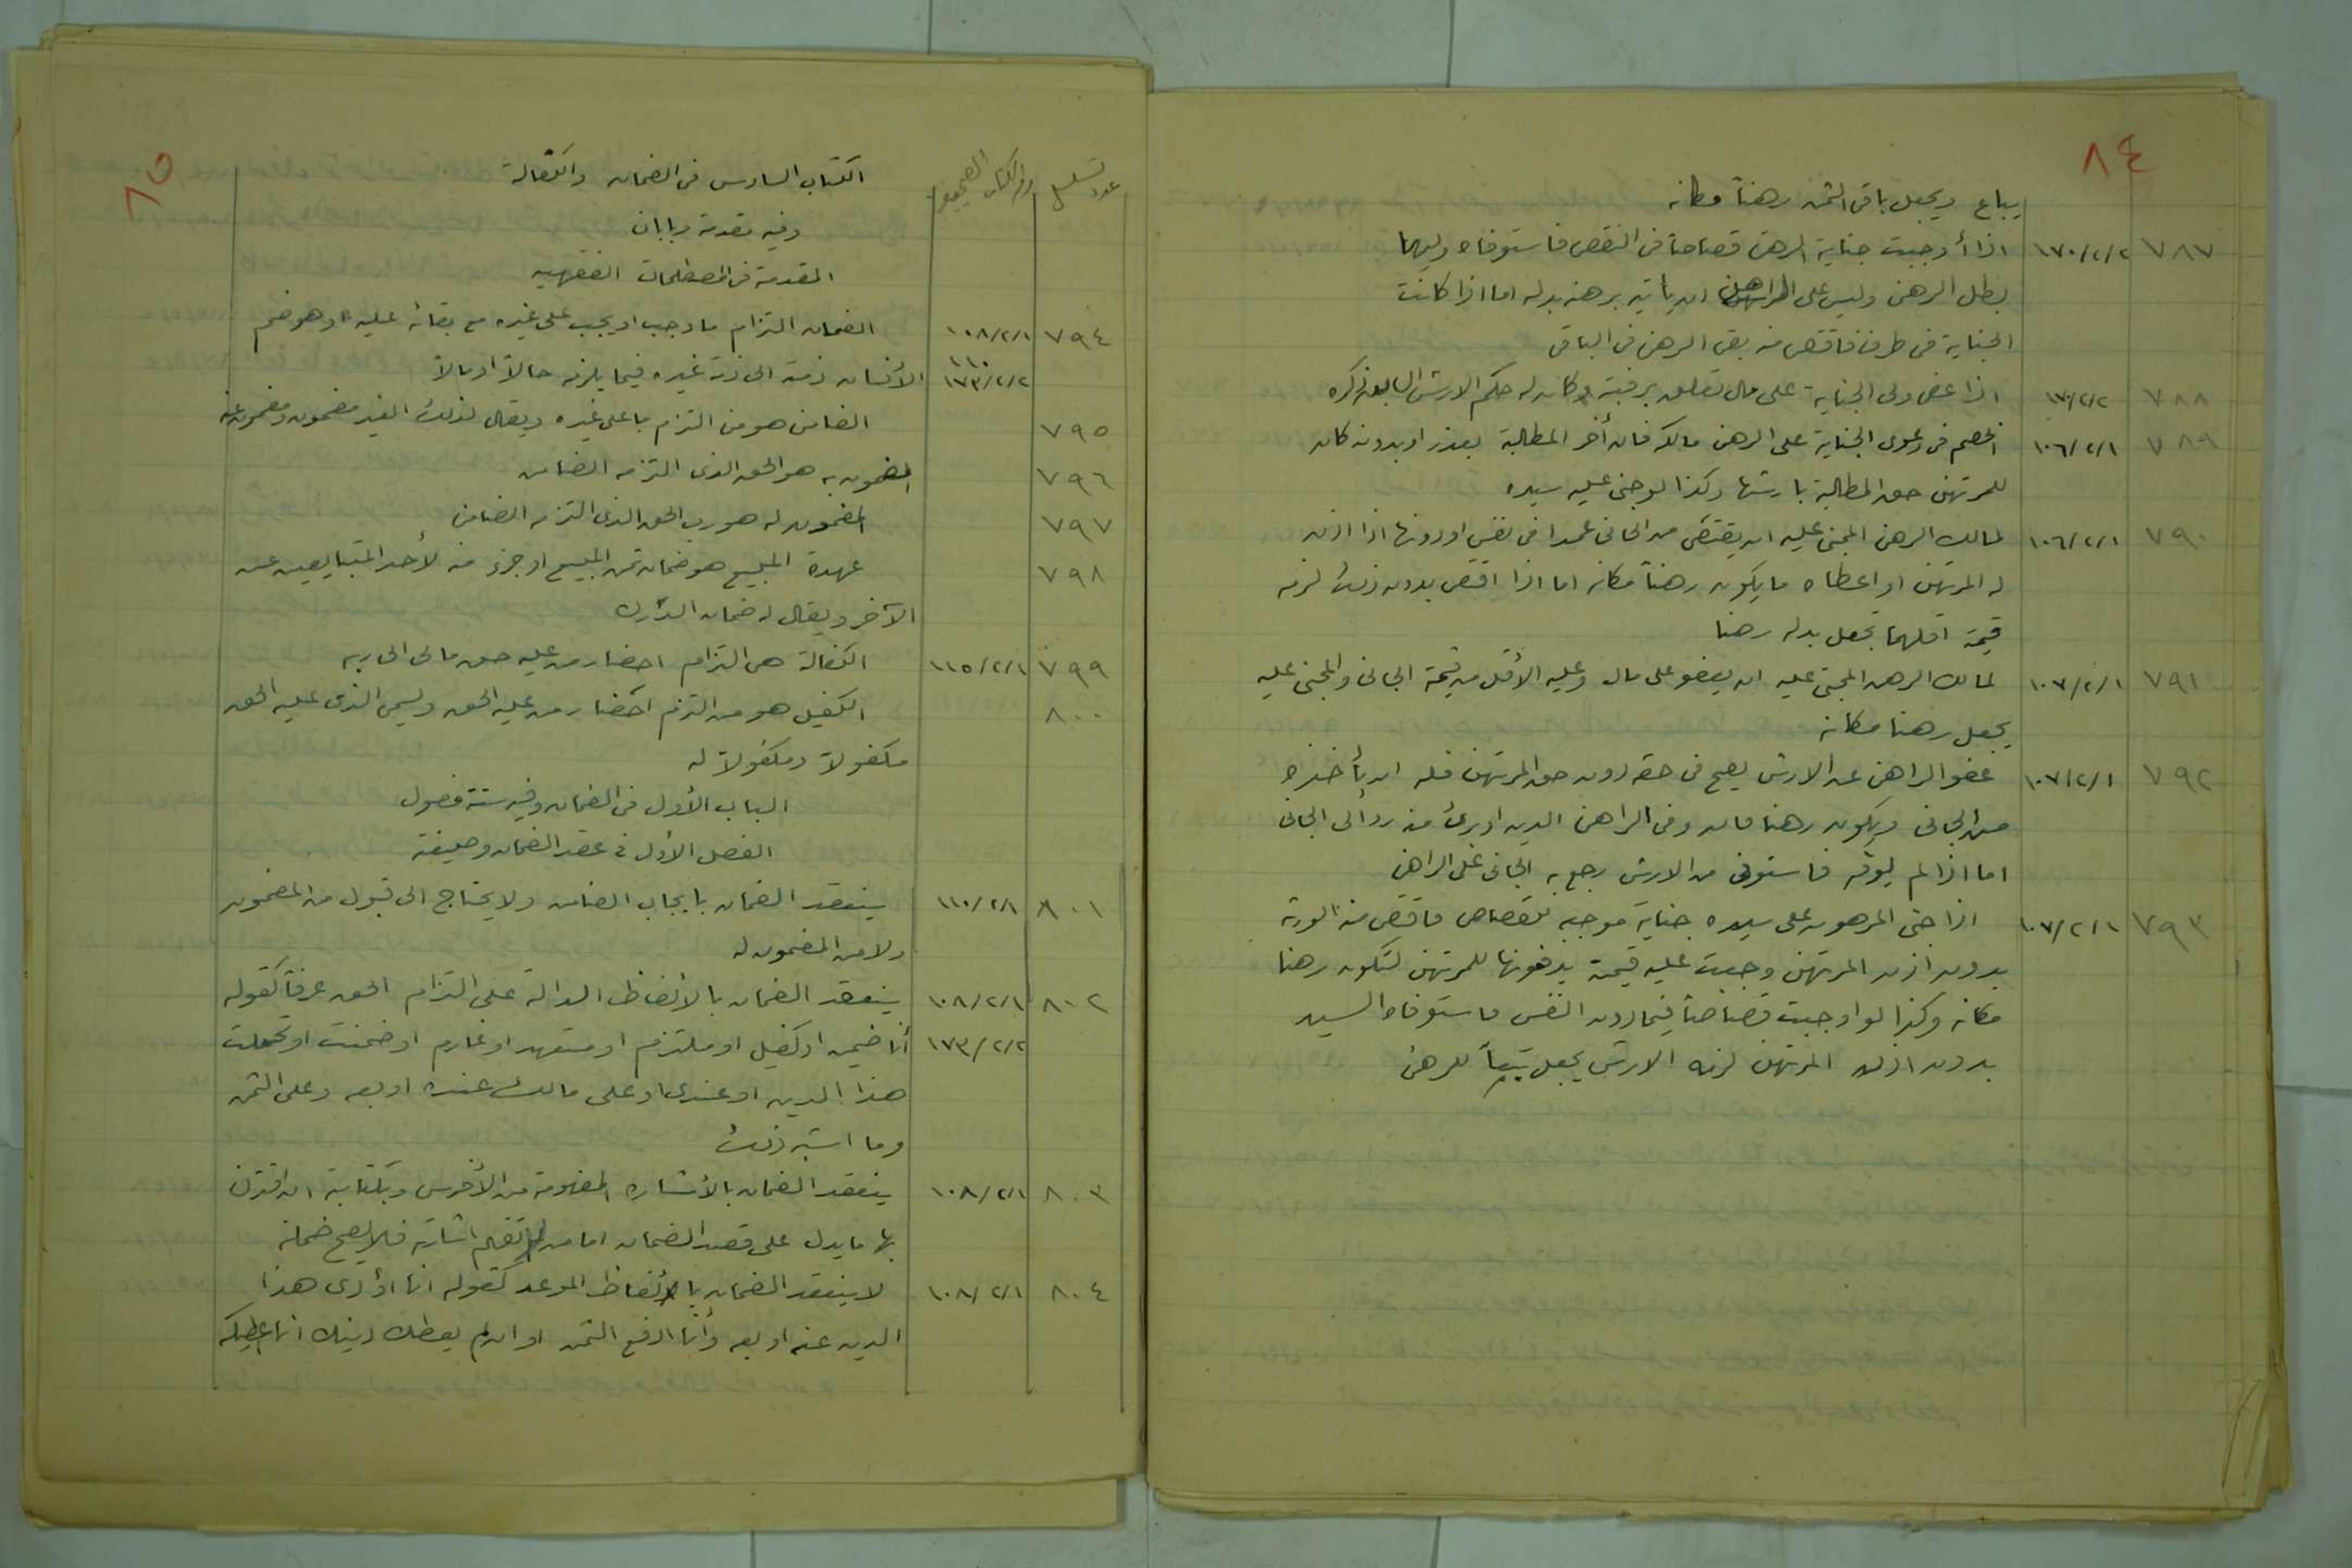 ٨٤
يباع ويجعل باقي الثمن رهناً مكانه
٧٨٧ ١٧٠/٢/٢ اذا أوجبت جناية الرهن قصاصاً في النفس فاستوفاه وليها
بطل الرهن وليس على الراهن ان يأتيه برهن بدله اما اذا كانت
الجناية في طرف فاقتص منه بقي الرهن في الباقي
٧٨٨ ١٧٠/٢/٢ اذا عفى ولي الجناية على مال تعلق برقبته وكان له حكم الارش السابق ذكره
٧٨٩ ١٠٦/٢/١ الخصم في دعوى الجناية على الرهن مالكه فان أخر المطالبة بعذر او بدونه كان
للمرتهن حق المطالبة بارشها وكذا لو جنى عليه سيده
٧٩٠ ١٠٦/٢/١ لمالك الرهن المجني عليه ان يقتص من الجاني عمدا في نفس او دونها اذا اذن
له المرتهن او اعطاه ما يكون رهناً مكانه اما اذا اقتص بدون ذلك لزمه
قيمة اقلهما تجعل بدله رهنا
٧٩١ ١٠٧/٢/١ لمالك الرهن المجني عليه ان يعفو على مال وعليه الأقل من قيمة الجاني والمجني عليه
يجعل رهنا مكانه
٧٩٢ ١٠٧/٢/١ عفو الراهن عن الارش يصح في حقه دون حق المرتهن فله ان يأخذه
من الجاني ويكون رهنا فان وفى الراهن الدين او برئ منه رد الى الجاني
اما اذا لم يوفه فاستوفى من الارش رجع به الجاني على الراهن
٧٩٣ ١٠٧/٢/١ اذا جنى المرهون على سيده جناية موجبة للقصاص فاقتص منه الورثة
بدون اذن المرتهن وجبت عليه قيمة يدفعونها للمرتهن لتكون رهنا
مكانه وكذا لو اوجبت قصاصاً فيما دون النفس فاستوفاه السيد
بدون اذن المرتهن لزمه الارش يجعل تبعاً للرهن
٨٥
عدد تسلسل
الكتاب السادس في الضمان والكفالة
وفيه مقدمة وبابان
المقدمة في المصطلحات الفقهيه
٧٩٤ ١٠٨/٢/١ الضمان التزام ما وجب او يجب على غيره مع بقائه عليه او هو ضم
١١٠ ١٧٣/٢/٢ الأنسان ذمته الى ذمة غيره فيما يلزمه حالاً او مالاً
٧٩٥ الضامن هو من التزم ما على غيره ويقال لذلك الغير مضمون ومضمون عنه
٧٩٦ المضمون به هو الحق الذي التزمه الضامن
٧٩٧ المضمون له هو رب الحق الذي التزمه الضامن
٧٩٨ عهدة المبيع هو ضمان ثمن المبيع او جزء منه لأحد المتبايعين عن
الآخر ويقال له ضمان الدرك
٧٩٩ ١١٥/٢/١ الكفالة هي التزام احضار من عليه حق مالي الى ربه
٨٠٠ الكفيل هو من التزم احضار من عليه الحق ويسمى الذي عليه الحق
مكفولاً ومكفولاً له
الباب الأول في الضمان وفيه ستة فصول
الفصل الأول في عقد الضمان وصيغته
٨٠١ ١١٠/٢/١ ينعقد الضمان بايجاب الضامن ولا يحتاج الى قبول من المضمون
ولا من المضمون له
٨٠٢ ١٠٨/٢/١ ينعقد الضمان بالألفاظ الدالة على التزام الحق عرفاً كقوله
١٧٣/٢/٢ أنا ضمين او كفيل او ملتزم او متعهد او غارم او ضمنت او تحملت
هذا الدين او عندي او على مالك عنده او بعه وعلي الثمن
وما اشبه ذلك
٨٠٣ ١٠٨/٢/١ ينعقد الضمان بالأشارة المفهومة من الأخرس وبكتابة ان اقترن
بها ما يدل على قصد الضمان اما من لم تفهم اشارته فلا يصح ضمانه
٨٠٤ ١٠٨/٢/١ لا ينعقد الضمان بألفاظ الموعد كقوله انا اؤدي هذا
الدين عنه او بعه وأنا ادفع الثمن او ان لم يعطك دينك انا اعطيكه